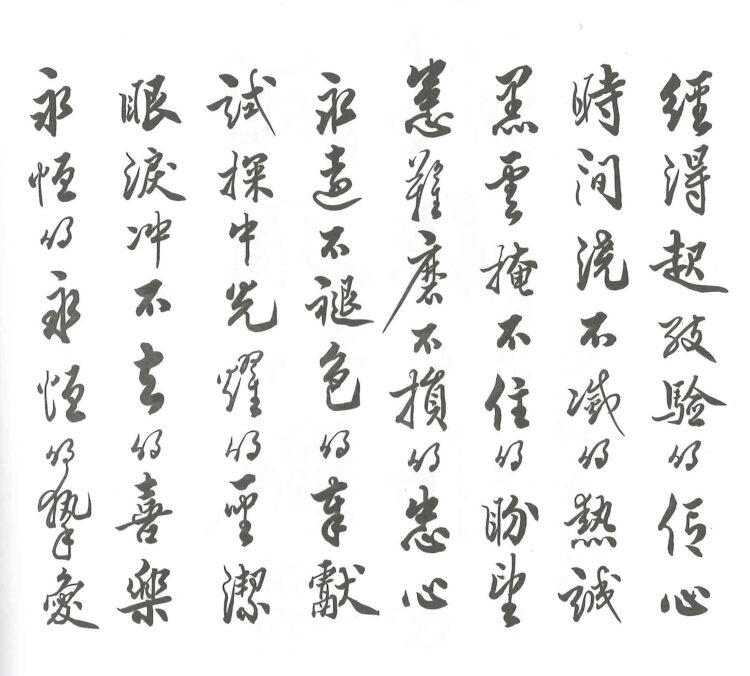 經得起考驗的信心
時間澆不滅的熱誠
黑雲掩不住的盼望
患難磨不損的忠心
永遠不褪色的奉獻
試探中光耀的聖潔
眼淚冲不去的喜樂
永恆的永恆的摯愛